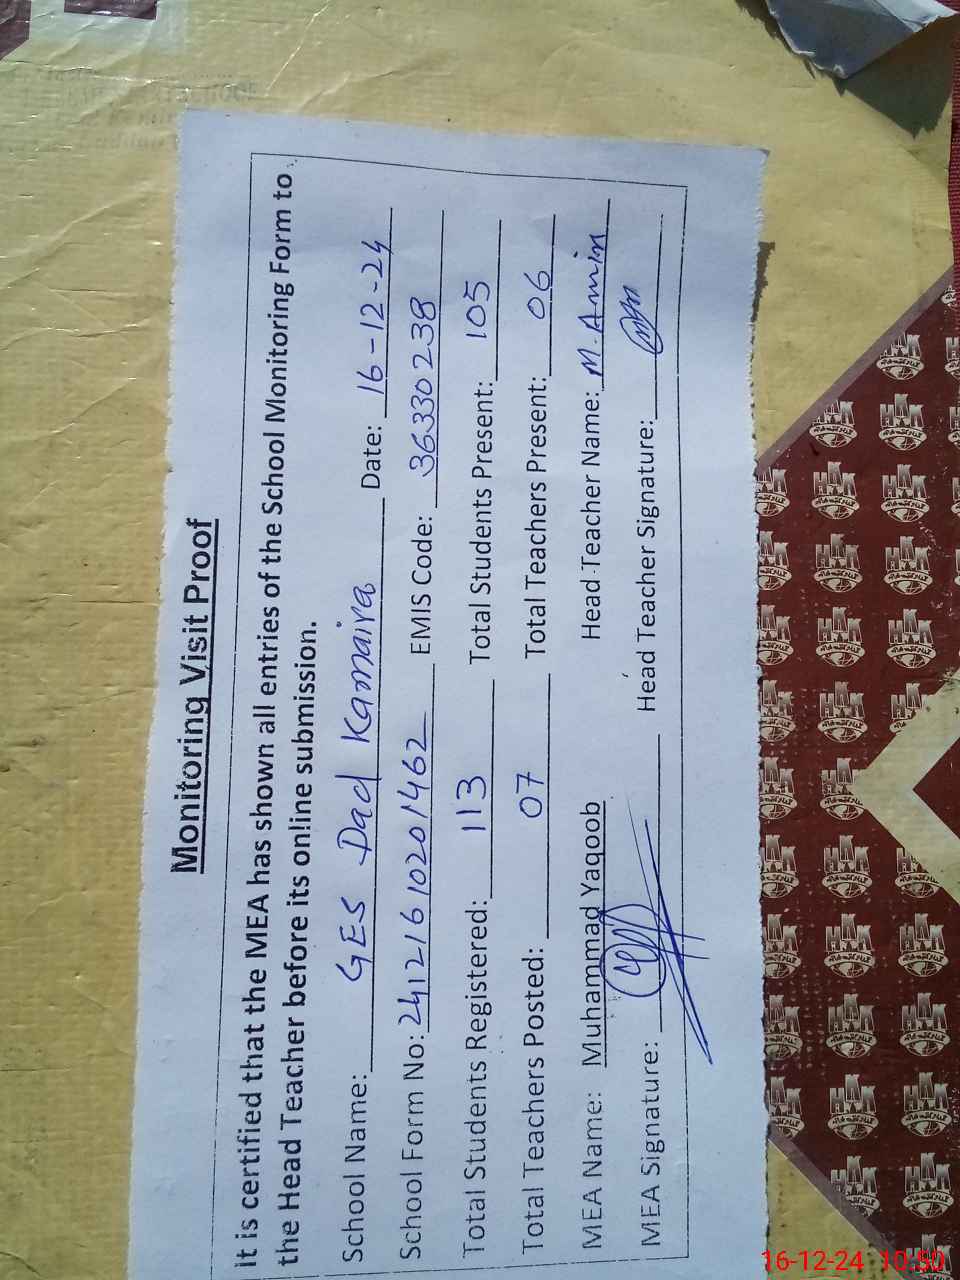 Monitoring Visit Proof
It is certified that the MEA has shown all entries of the School Monitoring Form to
the Head Teacher before its online submission.
School Name: GES Dad Kamaira Date: 16-12-24
School Form No: 2412161020 1462 EMIS Code: 36330238
Total Students Registered: 113 Total Students Present: 105
Total Teachers Posted: 07 Total Teachers Present: 06
MEA Name: Muhammad Yaqoob Head Teacher Name: M. Amin
MEA Signature: Head Teacher Signature:
16-12-24 10:50